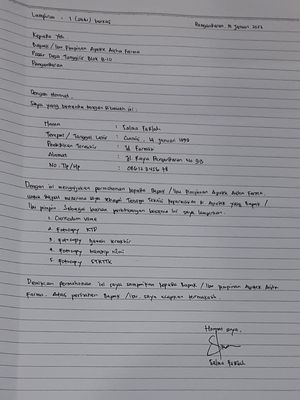 Lampiran : 1 (satu) berkas
Pangandaran, 16 Januari 2022
Kepada Yth
Bapak / Ibu Pimpinan Apotek Aisha Farma
Pasar Desa Blok B.10
Pangandaran
Dengan Hormat,
Saya yang bertanda tangan dibawah ini :
Nama : Salwa
Tempat / Tanggal Lahir : Ciamis, 14 Januari 1999
Pendidikan Terakhir : D3 Farmasi
Alamat : Jl. Raya Pangandaran No
No. Tlp/Hp :
Dengan ini mengajukan permohonan kepada Bapak / Ibu Pimpinan Apotek Aisha Farma,
untuk dapat menerima Tenaga Teknis Kefarmasian di Apotek yang Bapak /
Ibu pimpin. Sebagai bahan pertimbangan bersama ini saya lampirkan :
1. Curriculum Vitae
2. Fotocopy KTP
3. Fotocopy Ijazah terakhir
4. Fotocopy transkip nilai
5. Fotocopy STRTTK
Demikian permohonan ini saya sampaikan kepada Bapak / Ibu Pimpinan Apotek Aisha
Farma. Atas perhatian Bapak / Ibu, saya ucapkan terimakasih.
Hormat saya,
Salwa